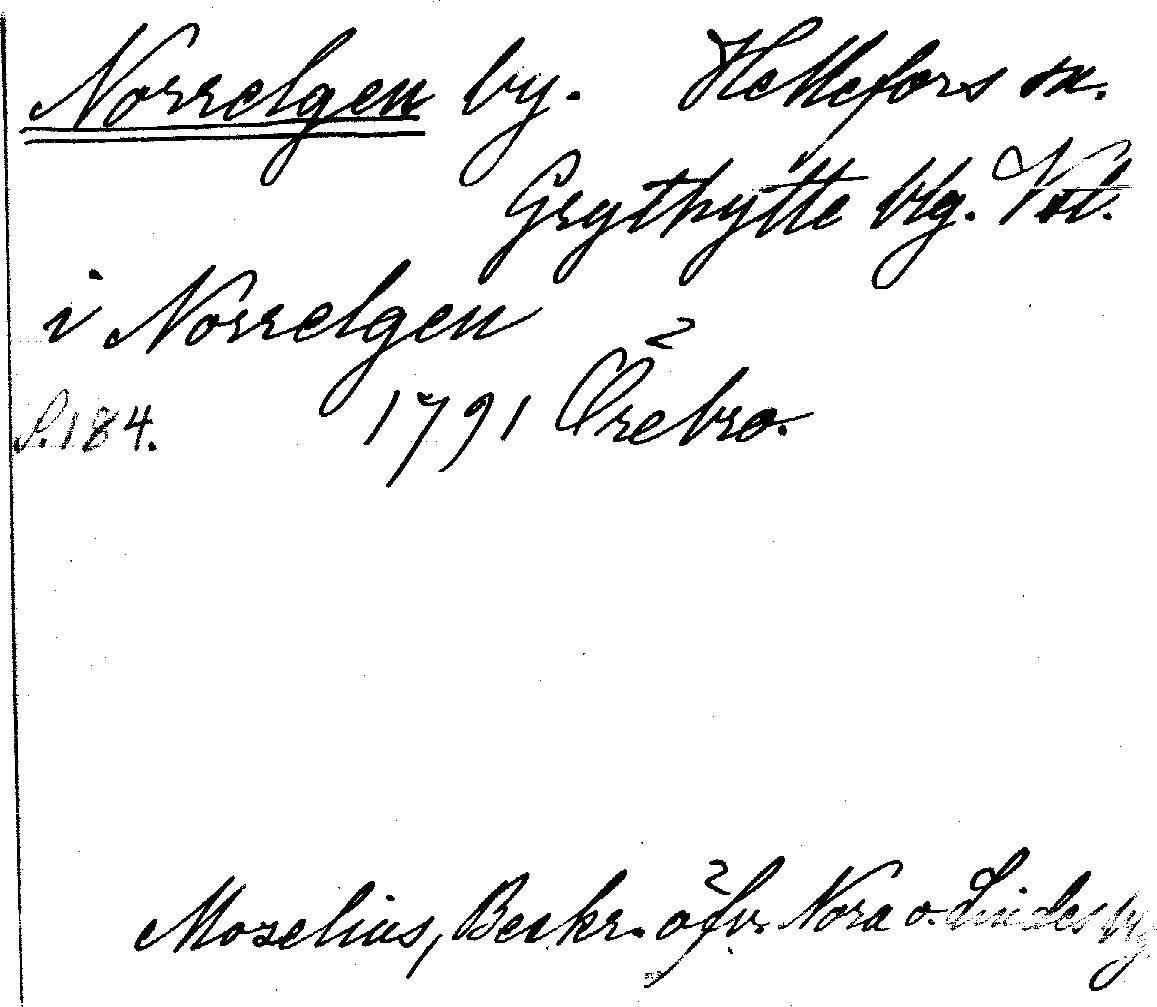 Norrelgen by. Hellefors sn.
Grythytte blg. Vstl.
i Norrelgen
S. 184. 1791 Örebro.
Moselius, Beskr. öfv. Nora o. Lindes blg